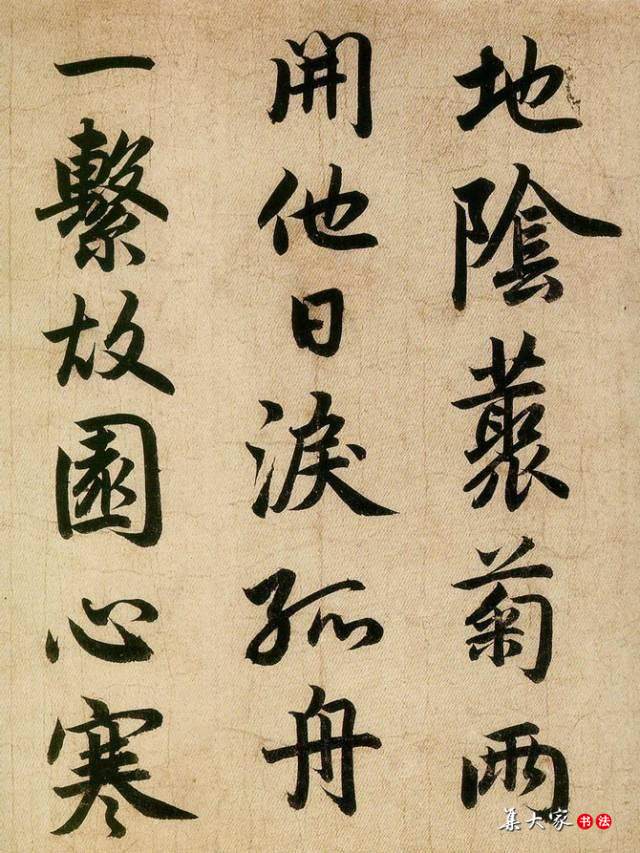 地陰叢菊兩
開他日淚孤舟
一繫故園心寒
集大家书法